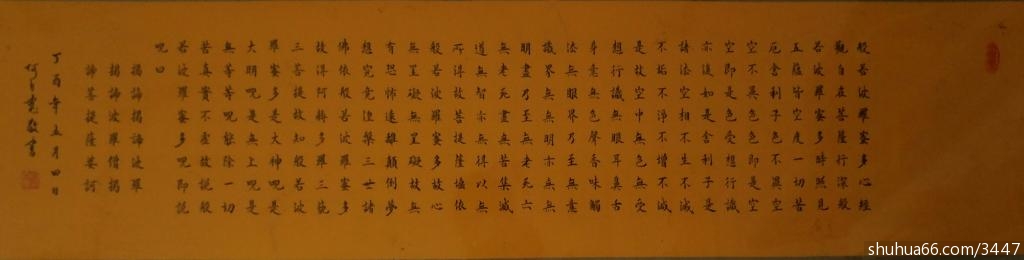 般若波羅蜜多心經
觀自在菩薩行深般
若波羅蜜多時照見
五蘊皆空度一切苦
厄舍利子色不異空
空不異色色即是空
空即是色受想行識
亦復如是舍利子是
諸法空相不生不滅
不垢不淨不增不減
是故空中無色無受
想行識無眼耳鼻舌
身意無色聲香味觸
法無眼界乃至無意
識界無無明亦無無
明盡乃至無老死亦
無老死盡無苦集滅
道無智亦無得以無
所得故菩提薩埵依
般若波羅蜜多故心
無罣礙無罣礙故無
有恐怖遠離顛倒夢
想究竟涅槃三世諸
佛依般若波羅蜜多
故得阿耨多羅三藐
三菩提故知般若波
羅蜜多是大神呪是
大明呪是無上呪是
無等等呪能除一切
苦真實不虛故說般
若波羅蜜多呪即說
呪曰
揭諦揭諦波羅
揭諦波羅僧揭
諦菩提薩婆訶
丁酉年五月四日
敬書
shuhua66.com/3447